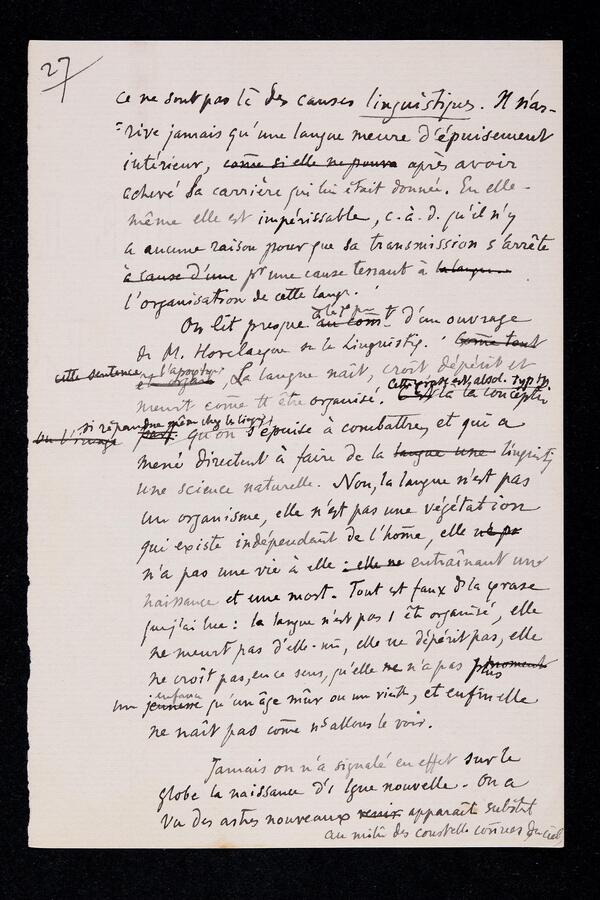 27
ce ne sont pas là des causes linguistiques. Il n'ar-
=rive jamais qu'une langue meure d'épuisement
intérieur, come si elle ne pouva après avoir
achevé sa carrière qui lui était donnée. En elle-
même elle est impérissable, c.à.d. qu'il n'y
a aucune raison pour que sa transmission s'arrête
à cause d'une pr une cause tenant à la langue
l'organisation de cette lang.
On lit presque à la 1e p. au comt d'un ouvrage
de M. Hovelacque sr la Linguistiq. : Come tout
cette sentence
La langue naît, croît, dépérit et
meurt come tt être organisé. Cette phrase est absol. typiq.
C'est là la conceptn
si répandue même chez les linguists
part. qu'on s'épuise à combattre, et qui a
mené directent à faire de la langue une linguistiq
une science naturelle. Non, la langue n'est pas
un organisme, elle n'est pas une végétation
qui existe indépendamt de l'home, elle n'e pa
n'a pas une vie à elle : elle ne entraînant une
naissance et une mort. Tout est faux ds la phrase
que j'ai lue : la langue n'est pas 1 être organisé, elle
ne meurt pas d'elle-m, elle ne dépérit pas, elle
ne croît pas, en ce sens, qu'elle ne n'a pas plus
une jeunesse enfance qu'un âge mûr ou un vieill, et enfin elle
ne naît pas come ns allons le voir.
Jamais on n'a signalé en effet sur le
globe la naissance d'1 lgue nouvelle. On a
vu des astres nouveaux venir apparaît subitt
au milieu des constelle connues du ciel